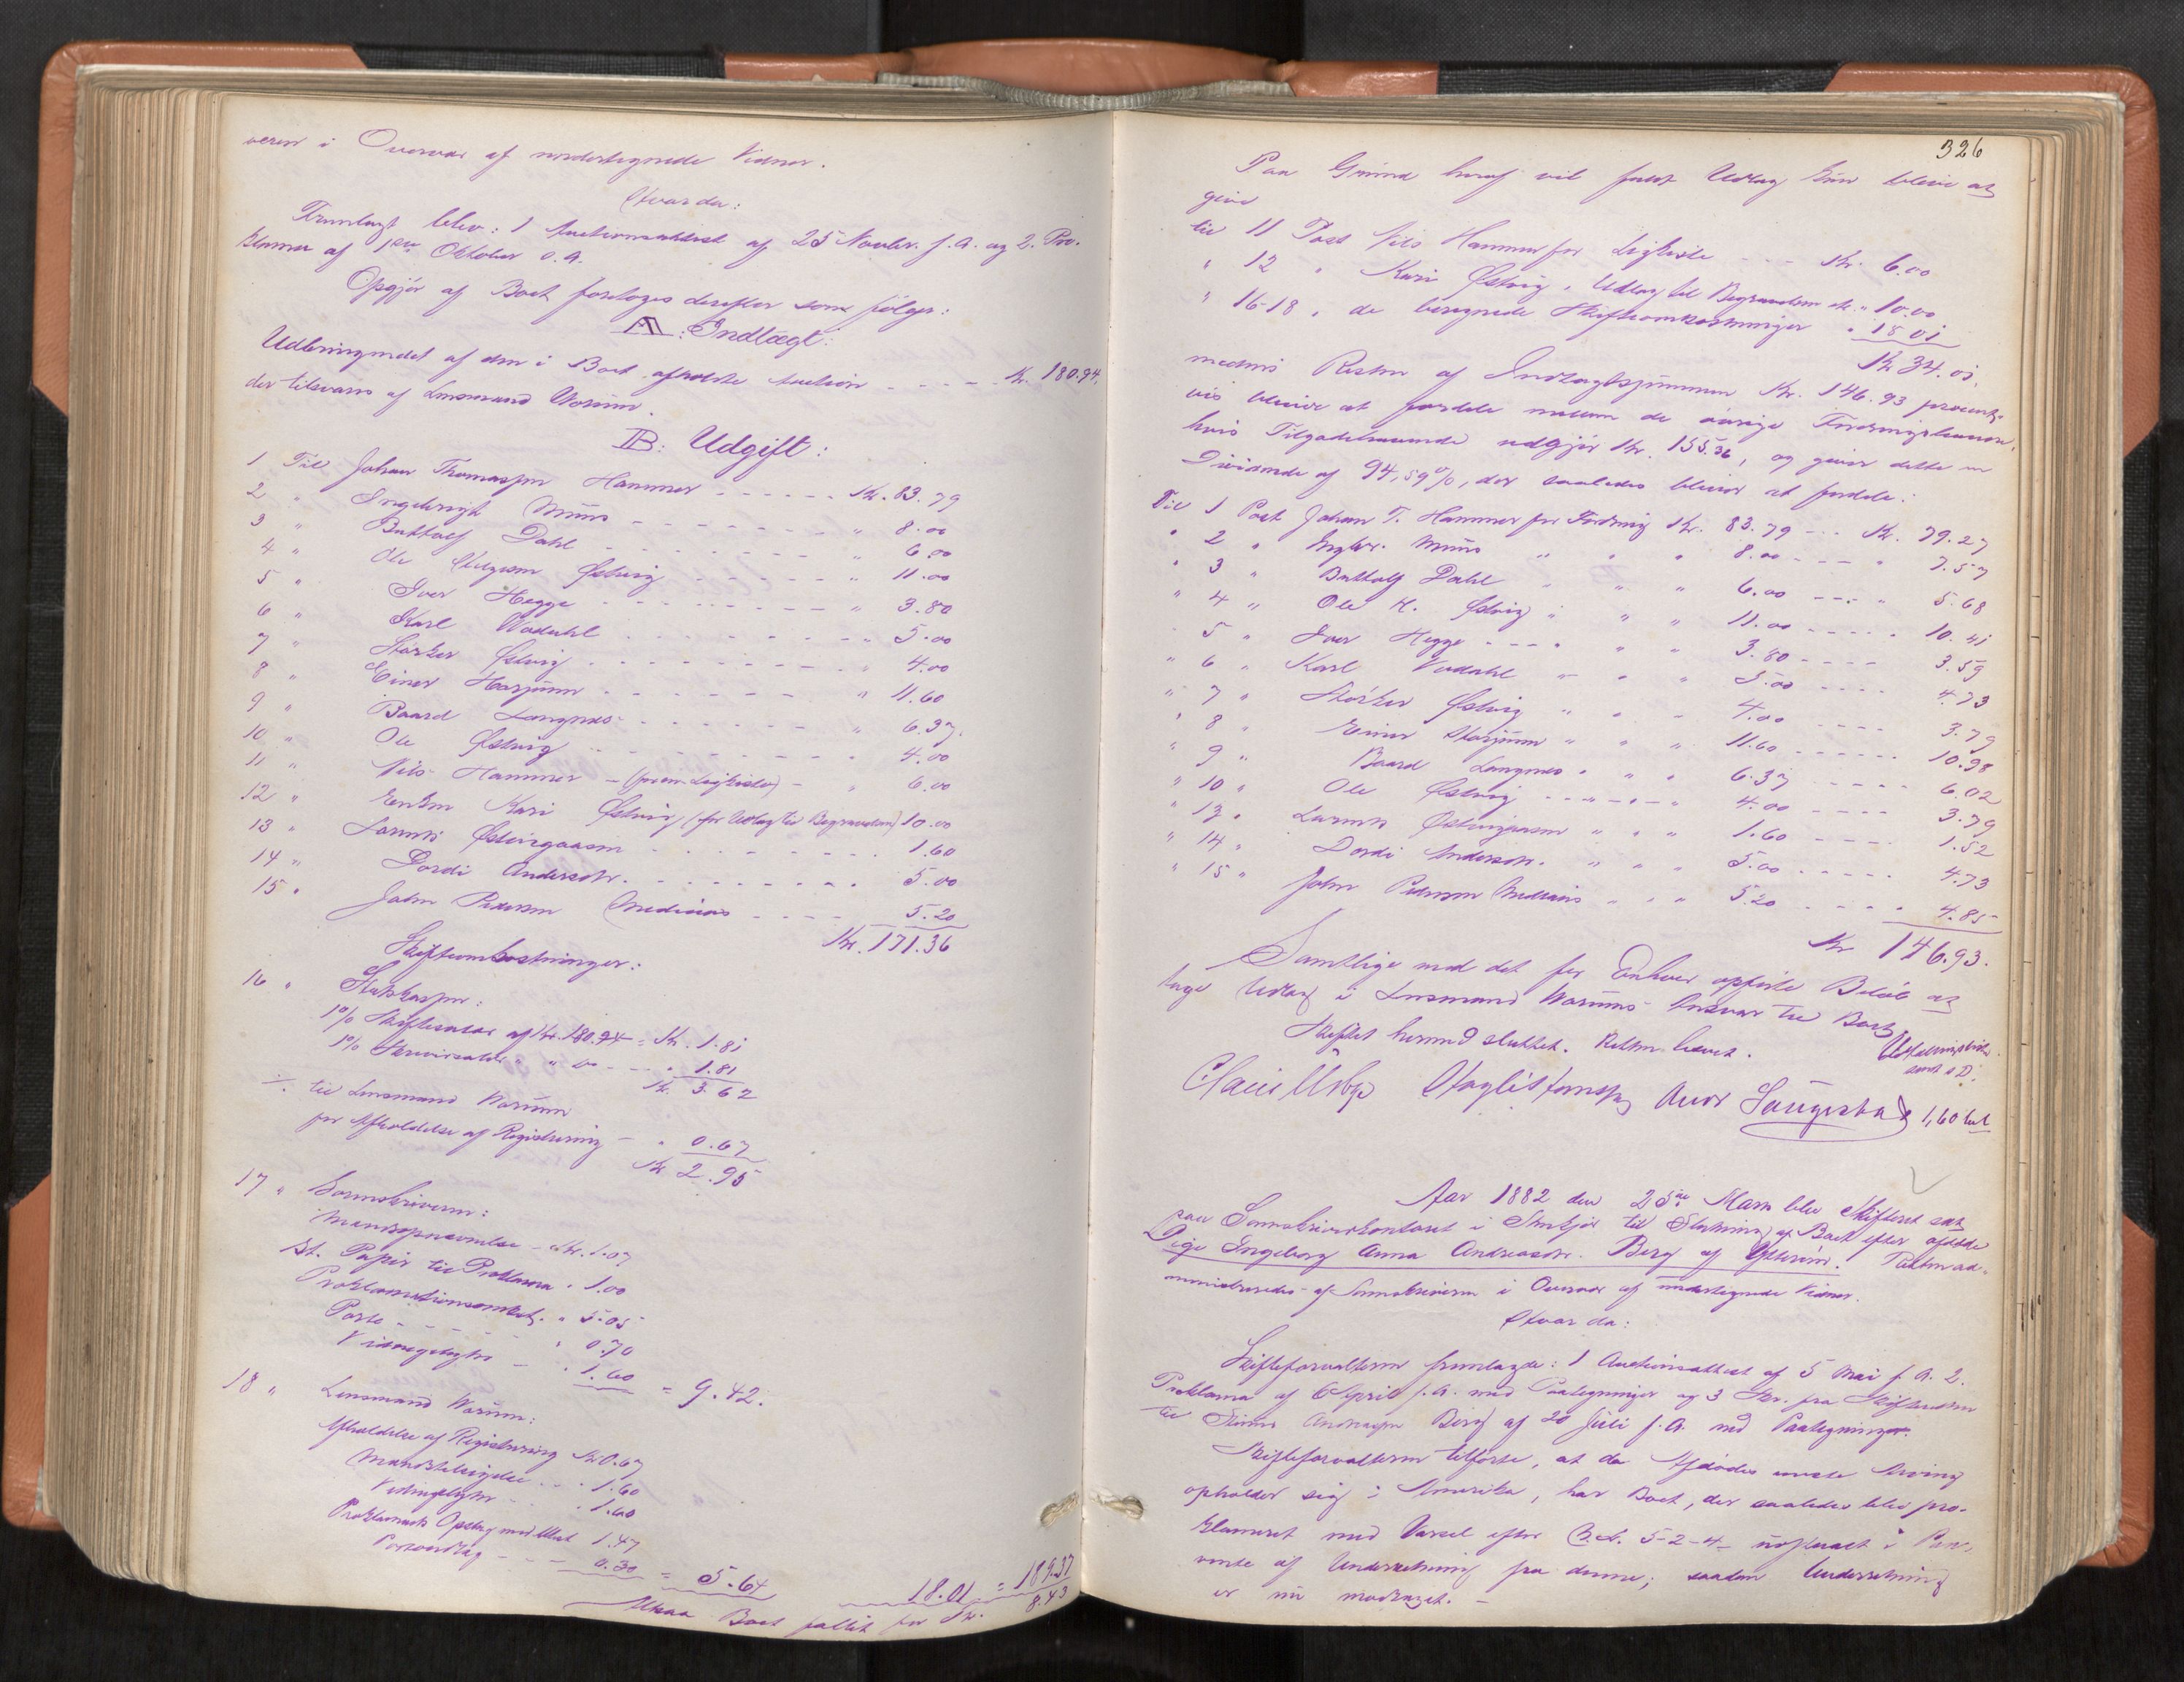 veren i Overvær af undertegnede Vidner.
Hvorda:
Fremlagt blev: 1 Auctionsattest af 25 Novbr. f. A. og 2. Pro-
klama af 1ste Oktober s. A.
Opgjør af Boet foretoges derefter som følger:
A: Indtægt:
Udbringendet af den i Boet afholdte Auction - - - - - Kr. 180.94,
der tilsvares af Lensmand Worum.
B: Udgift:
1 Til Johan Thomassen Hammer - - - - - - Kr. 83.79
2 " Ingebrigt Muus - - - - - - - - " 8.00
3 " Buttolf Dahl - - - - - - - - " 6.00
4 " Ole Østvig - - - - - - " 11.00
5 " Iver Hegge - - - - - - - - " 3.80
6 " Karl Wodahl - - - - - - - - " 5.00
7 " Størker Østvig - - - - - - - - " 4.00
8 " Einer - - - - - - - " 11.60
9 " Baard Langnes - - - - - - - " 6.37.
10 " Ole Østvig - - - - - - - - 4.00
11 " Nils Hammer - (for en Ligkiste) - " 6.00
12 " Enken Kari Østvig (for Udlæg til Begravelsen) 10.00
13 " Østvigaasen - - - - - - - 1.60
14 " Dordi Andersdtr. - - - - - - - - 5.00
15 " John Pedersen - - - - 5.20
Kr. 171.36
Skifteomkostninger:
16 " Statskassen:
1% Skifteskat af Kr. 180.94 = Kr. 1.81
1% Skriverskat " " " - - - " 1.81
Kr. 3.62
÷ til Lensmand Worum
for Afholdelse af Registrering - " 0.67
Kr. 2.95
17 " Sorenskriveren:
Mandsopnævnelse - Kr. 1.07
St. Papir til Proklama " 1.00
Proklamationsomkost. " 5.05
Porto - - - - " 0.70
Vidnegebyhr - " 1.60 = 9.42.
18 " Lensmand Worum:
Afholdelse af Registrering Kr 0.67
Mandstilsigelse - - " 1.60
Vidnegebyhr - " 1.60
Proklamaets Opslag med Attest 1.47
Portoudlæg - - - 0.30 = 5.64 18.01 = 189.37
Altsaa Boet fallit for Kr. 8.43
326
Paa Grund heraf vil fuldt Udlæg kun blive at
give
til 11 Post Nils Hammer for Ligkiste - - - Kr. 6.00
" 12 " Kari Østvig " Udlæg til Begravelsen etc. " 10.00
" 16-18 " de beregnede Skifteomkostninger " 18.01
Kr. 34.01,
medens Resten af Indtægtssummen Kr. 146.93 procent-
vis bliver at fordele mellem de øvrige Fordringshavere,
hvis Tilgodehavende udgjør Kr. 155.36, og giver dette en
Dividende af 94,59%, der saaledes bliver at fordele:
Til 1 Post Johan T. Hammer for Fordring Kr. 83.79 - - - Kr. 79.27
" 2 " Ingbr. Muus " " " 8.00 - - - - " 7.57
" 3 " Buttolf Dahl " " " 6.00 - - - " 5.68
" 4 " Ole H. Østvig " " " 11.00 - - - - - 10.41
" 5 " Iver Hegge - - - - " " " 3.80 - - - - 3.59
" 6 " Karl Vodahl " " " 5.00 - - - - 4.73
" 7 " Størker Østvig " " " 4.00 - - - - 3.79
" 8 " Einer " " " 11.60 - - - - - - 10.98
" 9 " Baard Langnes " " " 6.37 - - - - - 6.02
" 10 " Ole Østvig - - " - " - " 4.00 - - - - 3.79
" 13 " Østvigaasen " " " 1.60 - - - - 1.52
" 14 " Dordi Andersdtr. " " " 5.00 - - - - - 4.73
" 15 " John Pedersen " " " 5.20 - - - - 4.85
Kr 146.93.
Samtlige med det for Enhver opførte Beløb at
tage Udlæg i Lensmand Worums Ansvar til Boet.
Skiftet hermed sluttet. Retten hævet.
1,60 bet
Aar 1882 den 23de Marts blev Skifteret sat
paa Sorenskriverkontoret i Stenkjær til Slutning af Boet efter afdøde
Pige Ingeborg Anna Andreasdtr. Berg af Ytterøen. Retten ad-
ministreredes af Sorenskriveren i Overvær af undertegnede Vidner.
Hvorda:
Skifteforvalteren fremlagde: 1 Auctionsattest af 5 Mai f. A. 2.
Proklama af 6 April f. A. med Paategninger og 3 Skr. fra Skifteretten
til Andreassen Berg af 20 Juli f. A. med Paategninger.
Skifteforvalteren tilførte, at da Afdødes eneste Arving
opholder sig i Amerika, har Boet, der saaledes blev pro-
klameret med Varsel efter 5-2-4 i Paa-
vente af Underretning fra denne; saadan Underretning
er nu modtaget. -